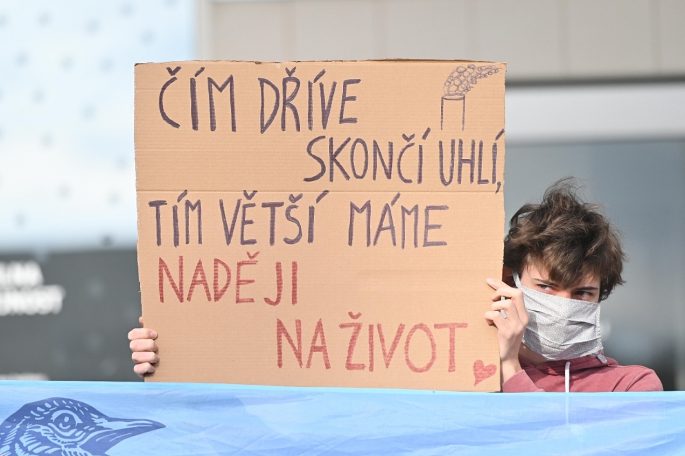 ČÍM DŘÍVE
SKONČÍ UHLÍ,
TÍM VĚTŠÍ MÁME
NADĚJI
NA ŽIVOT.